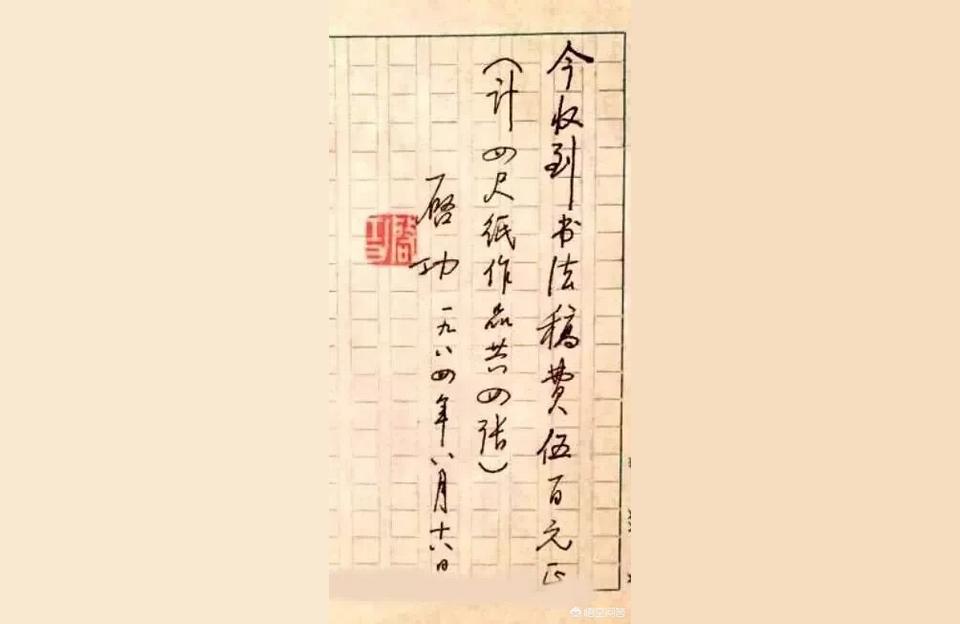 今收到书法稿费伍百元正
(计四尺纸作品共四张)
启功
一九八四年八月十六日
启功
悟空问答